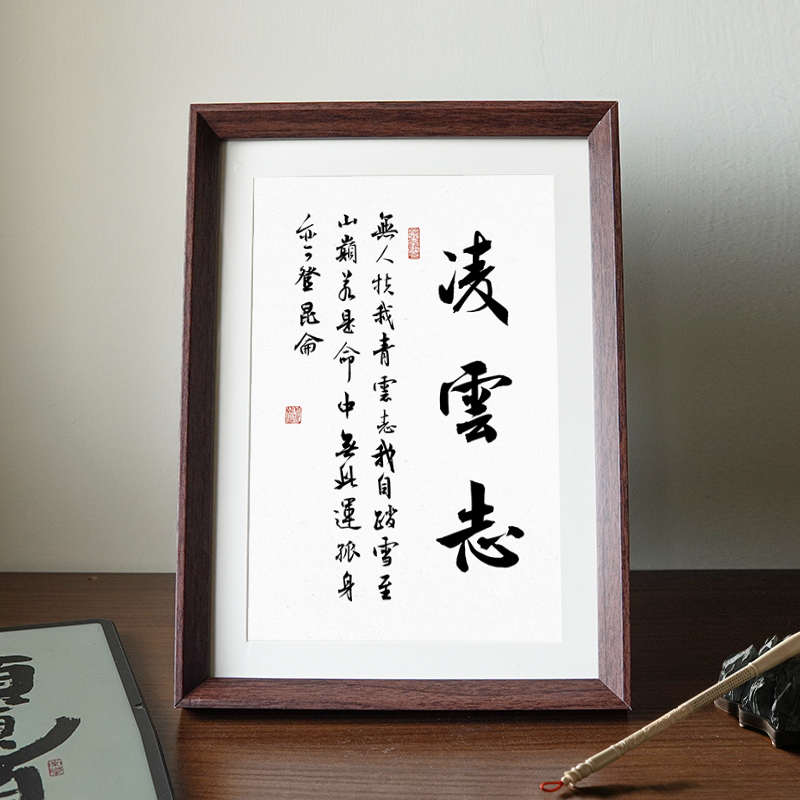 凌雲志
無人扶我青雲志我自踏雪至
山巔若是命中無此運孤身
亦可登昆侖